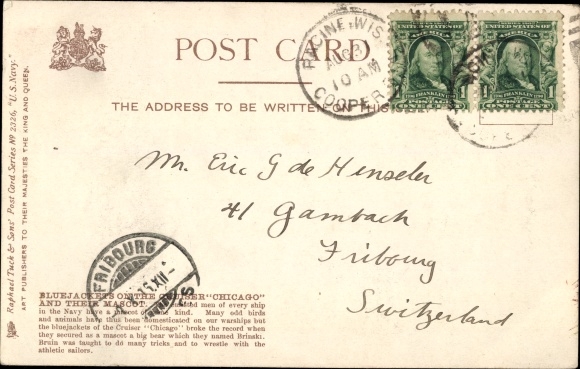 POST CARD
THE ADDRESS TO BE WRITTEN ON THIS
RACINE, WIS.
AUG
10 AM
COOPER
UNITED STATES OF AMERICA
FRANKLIN
1 POSTAGE 1
ONE CENT
UNITED STATES OF AMERICA
FRANKLIN
1 POSTAGE 1
ONE CENT
Mr. Eric G de Henseler
41 Gambach
Fribourg
Switzerland
FRIBOURG
XII
Raphael Tuck & Sons' Post Card Series No 2326, "U.S. Navy."
ART PUBLISHERS TO THEIR MAJESTIES THE KING AND QUEEN.
BLUEJACKETS ON THE CRUISER "CHICAGO"
AND THEIR MASCOT. men of every ship
in the Navy have a mascot of some kind. Many odd birds
and animals have thus been domesticated on our warships but
the bluejackets of the Cruiser "Chicago" broke the record when
they secured as a mascot a big bear which they named Brinski.
Bruin was taught to do many tricks and to wrestle with the
athletic sailors.